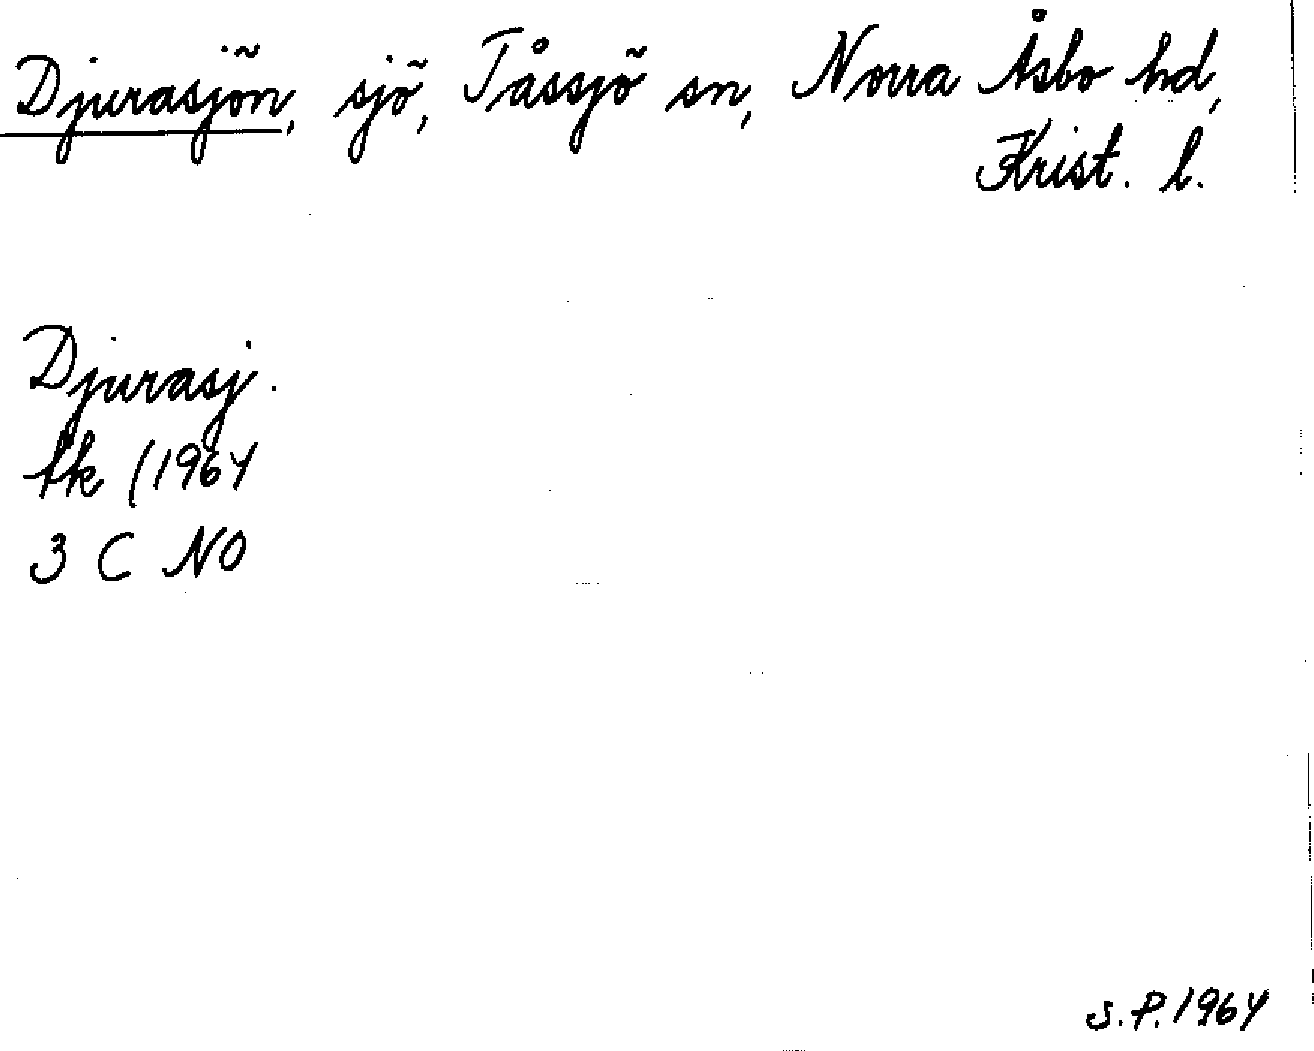 Djurasjön, sjö, Tåssjö sn, Norra Åsbo hd,
Krist. l.
Djurasj.
tk (1964
3 C NO
S.P. 1964